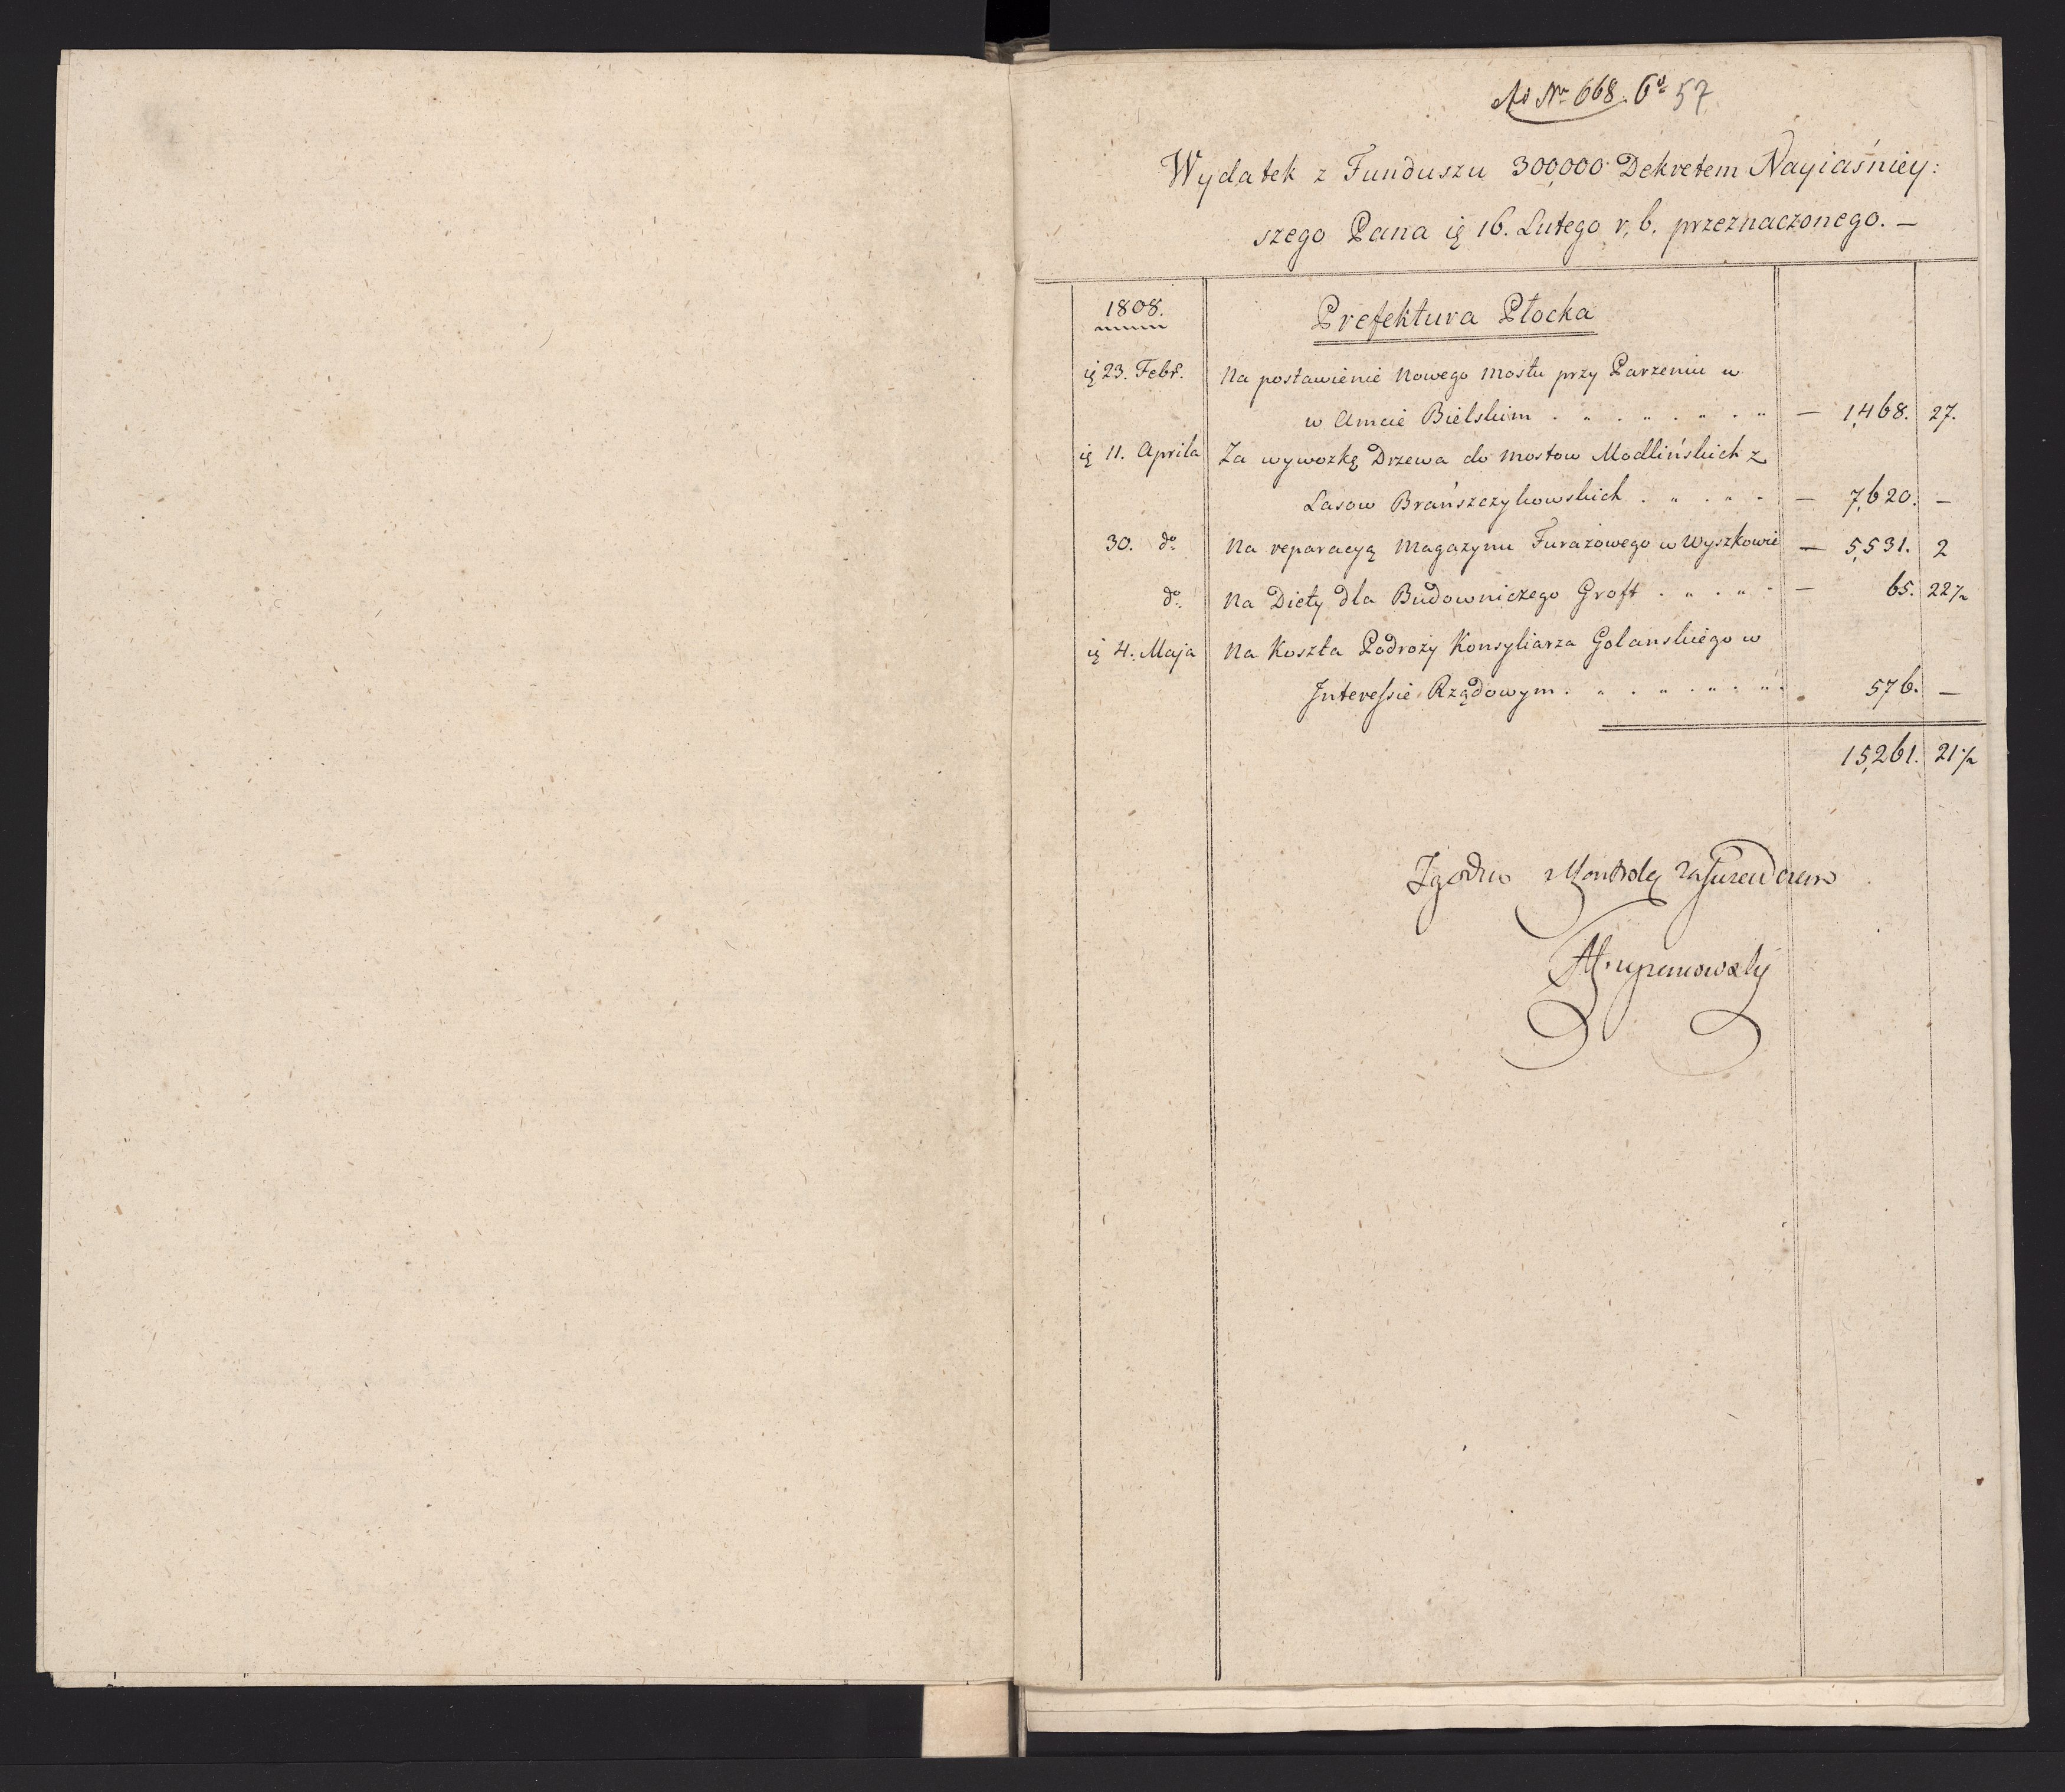 Ad Nr 668. 6° 57
Wydatek z Funduszu 300,000 Dekretem Nayiaśniey:
szego Pana ię 16. Lutego r. b. przeznaczonego. —
1808. Prefektura Płocka
ię 23. Febr. Na postawienie Nowego Mostu przy Parzeniu w
w Amcie Bielskim . „ . „ . „ . „ — 1,468. 27.
ię 11. Aprila Za wywozkę Drzewa do Mostow Modlińskich z
Lasow Brańszczykowskich . „ . „ . — 7,620. —
30. do Na reparacyą Magazynu Furażowego w Wyszkowie — 5,531. 2
do Na Diety dla Budowniczego Groft . „ . „ . — 65. 22½
ię 4. Maja Na Koszta Podroży Konsyliarza Golanskiego w
Interessie Rządowym . „ . „ . „ . „ . 576. —
15,261. 21½
Zgodno z Kontrolą